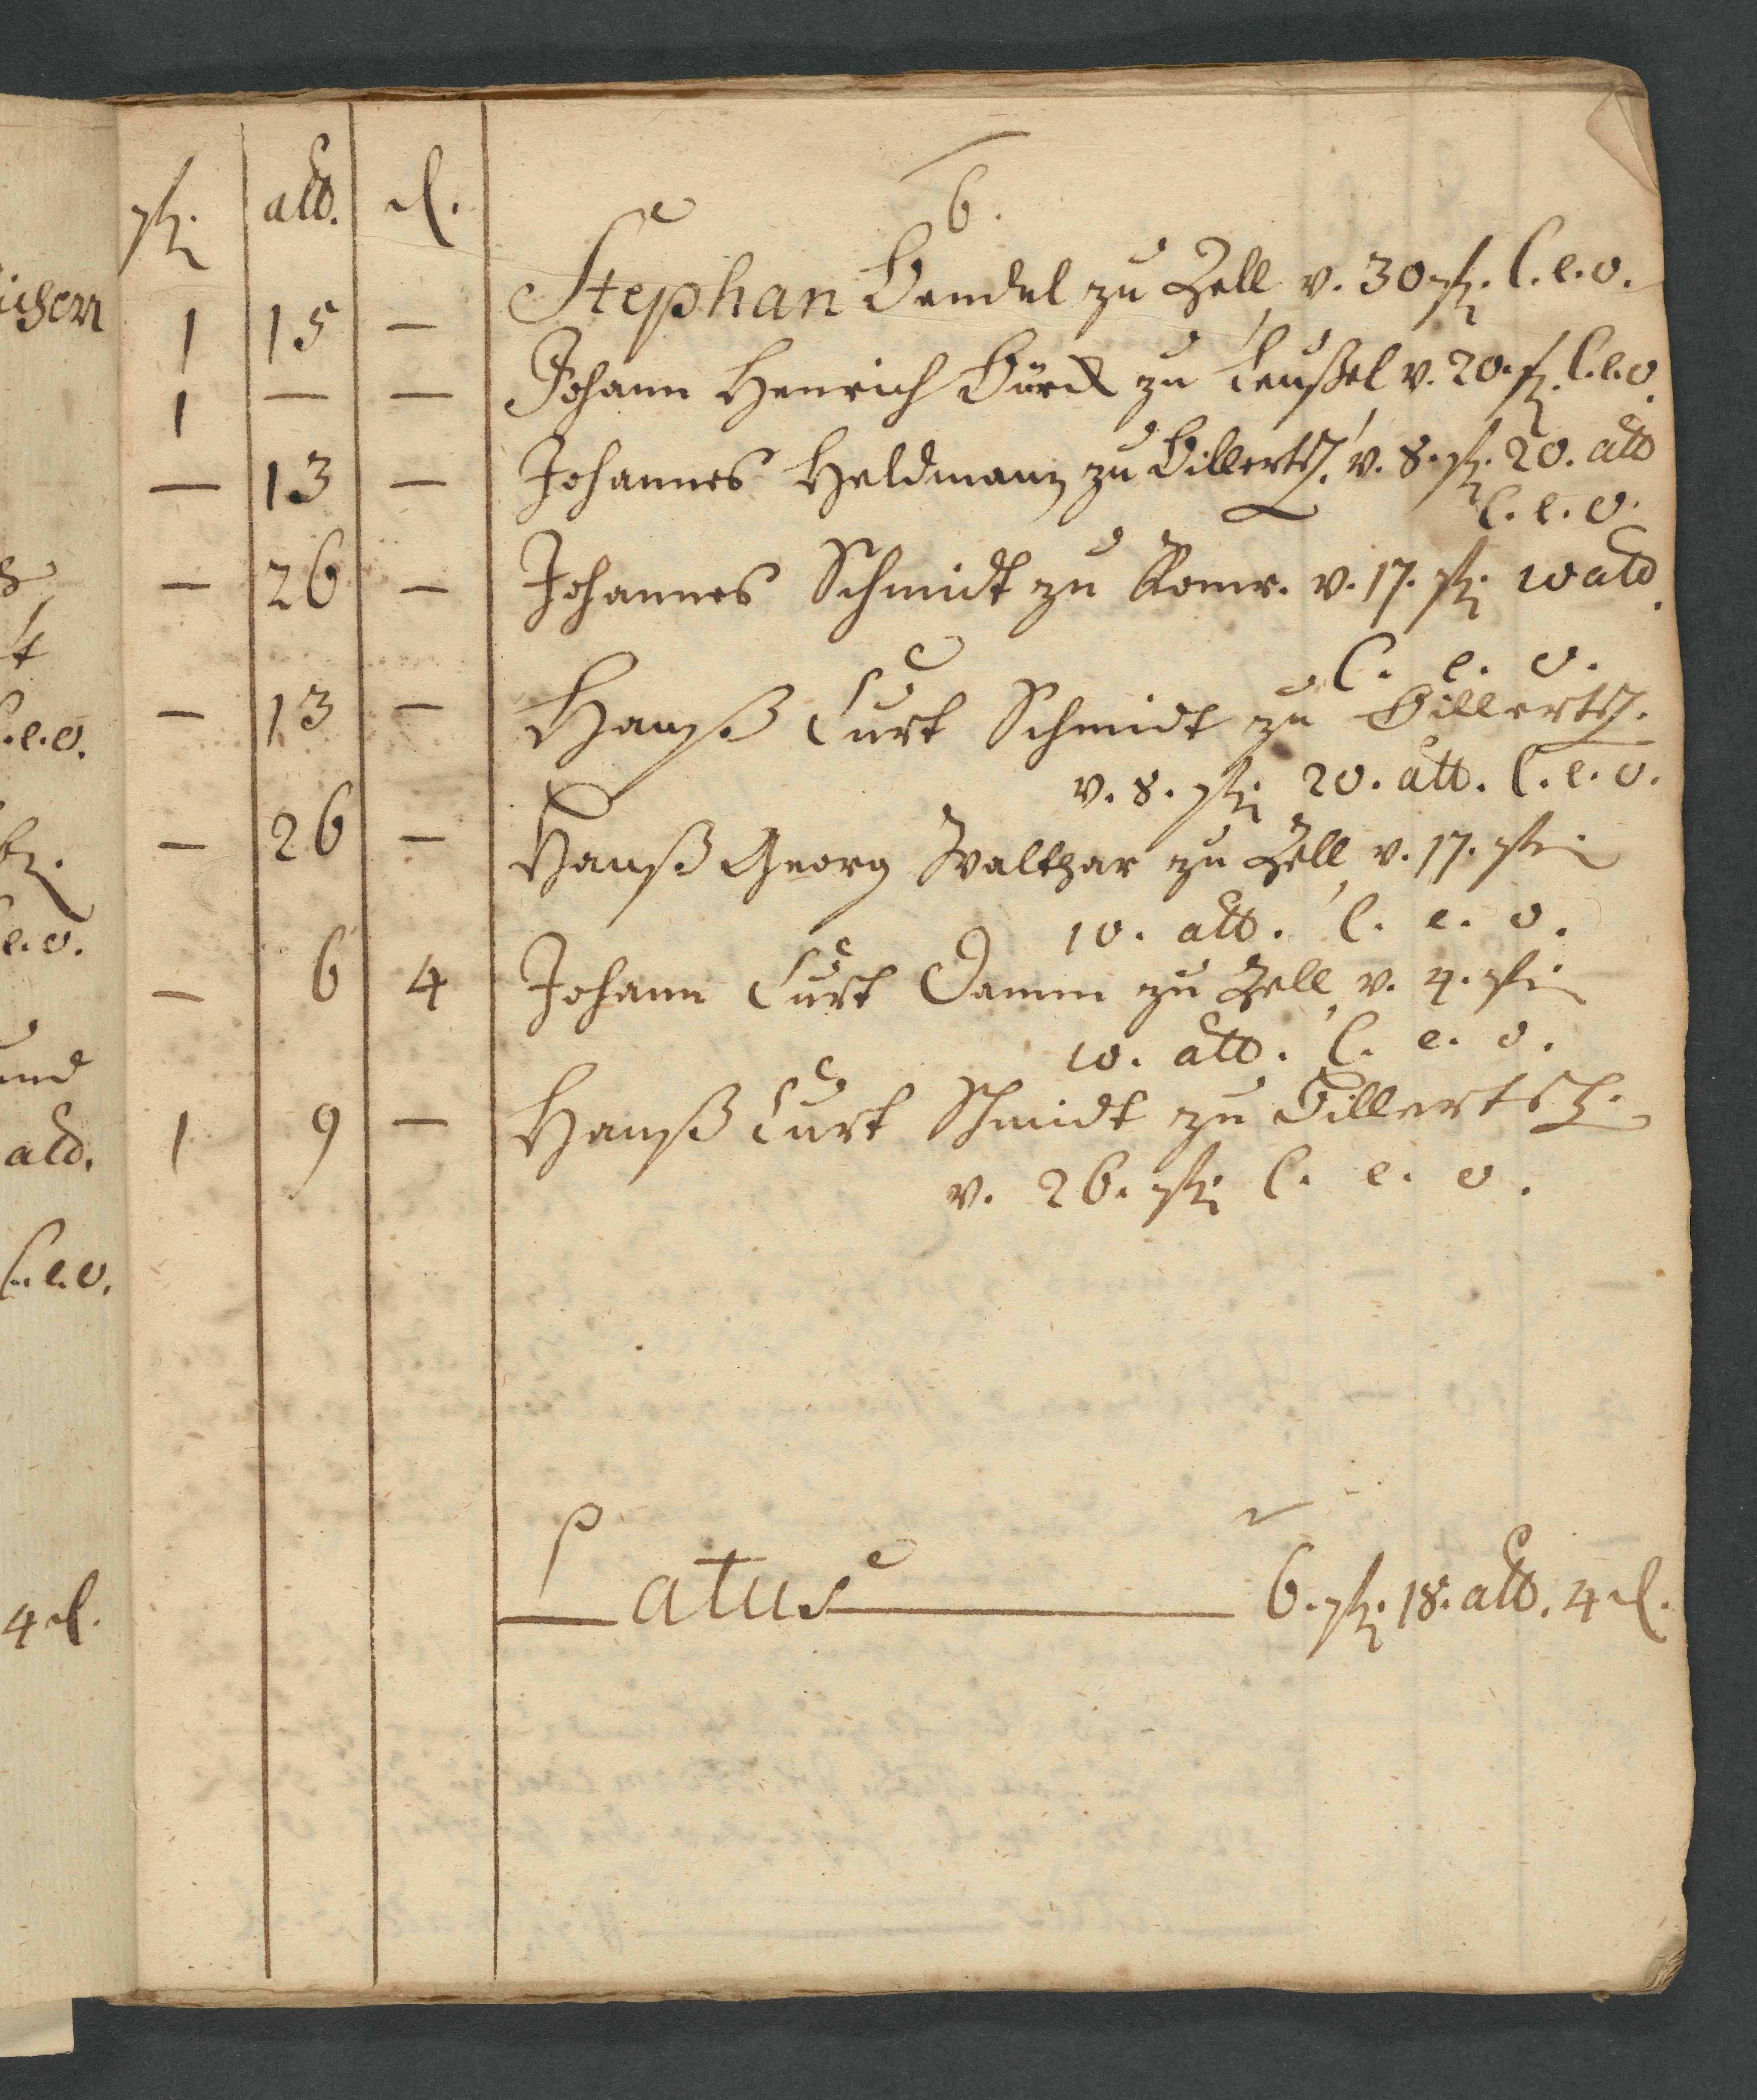 6.
rthlr. alb. d.
1 15 — Stephan Bendel zu Zell v. 30 rthlr. C. e. o.
1 — — Johann Henrich Bürck zu Leußel v. 20 rthlr. C. e. o.
— 13 — Johannes Heldmann zu Billertsh. v. 8. rthlr. 20. alb
C. e. o.
— 26 — Johannes Schmidt zu Romr. v. 17. rthlr. 10 alb.
C. e. o.
— 13 — Hanß Curt Schmidt zu Billertsh.
v. 8. rthlr. 20. alb. C. e. o.
— 26 — Hanß Georg Walther zu Zell v. 17. rthlr.
10. alb. C. e. o.
— 6 4 Johann Curt Damm zu Zell v. 4. rthlr.
10. alb. C. e. o.
1 9 — Hanß Curt Schmidt zu Billertsh.
v. 26. rthlr. C. e. o.
Latus 6. rthlr. 18. alb. 4 d.